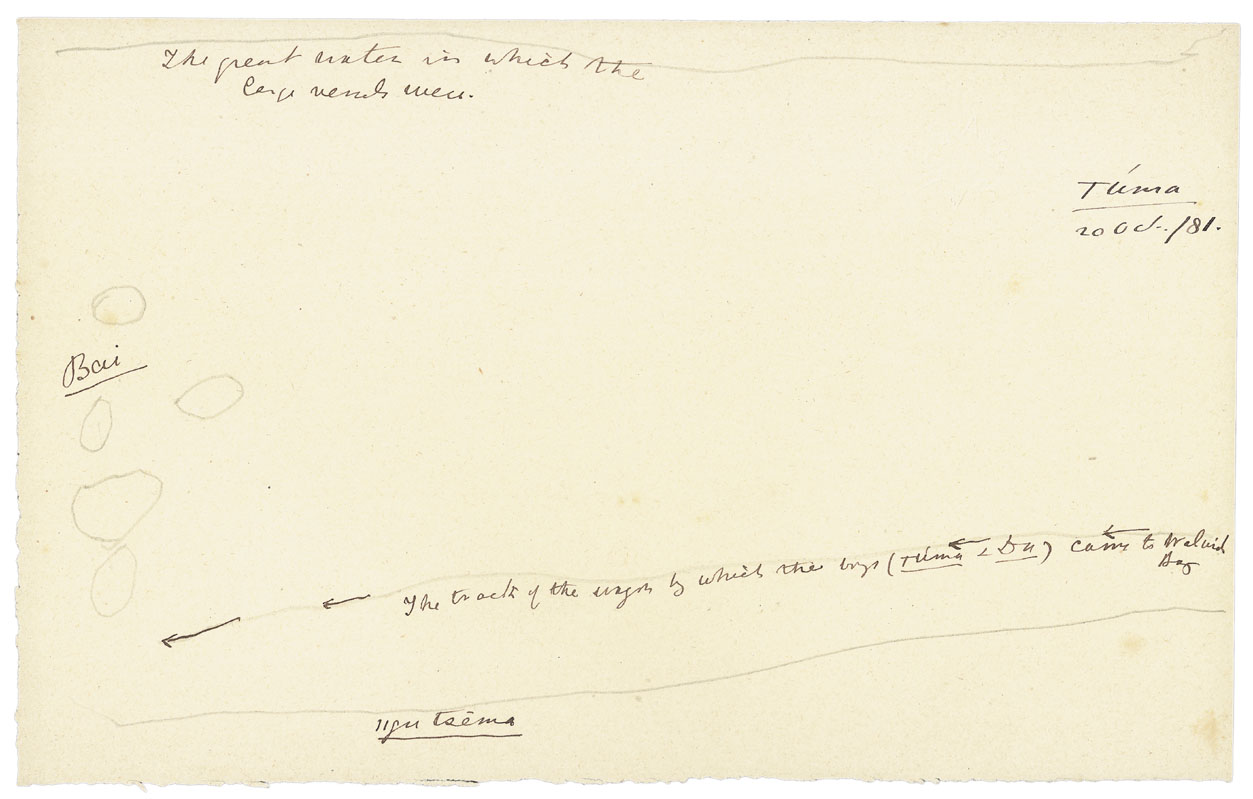 The great water in which the
large vessels were.
Túma
20 Oct. /81.
Bai
The track of the wagon by which the boys (Túma & Da) came to Walvich
Bay
ǁgu tsēma